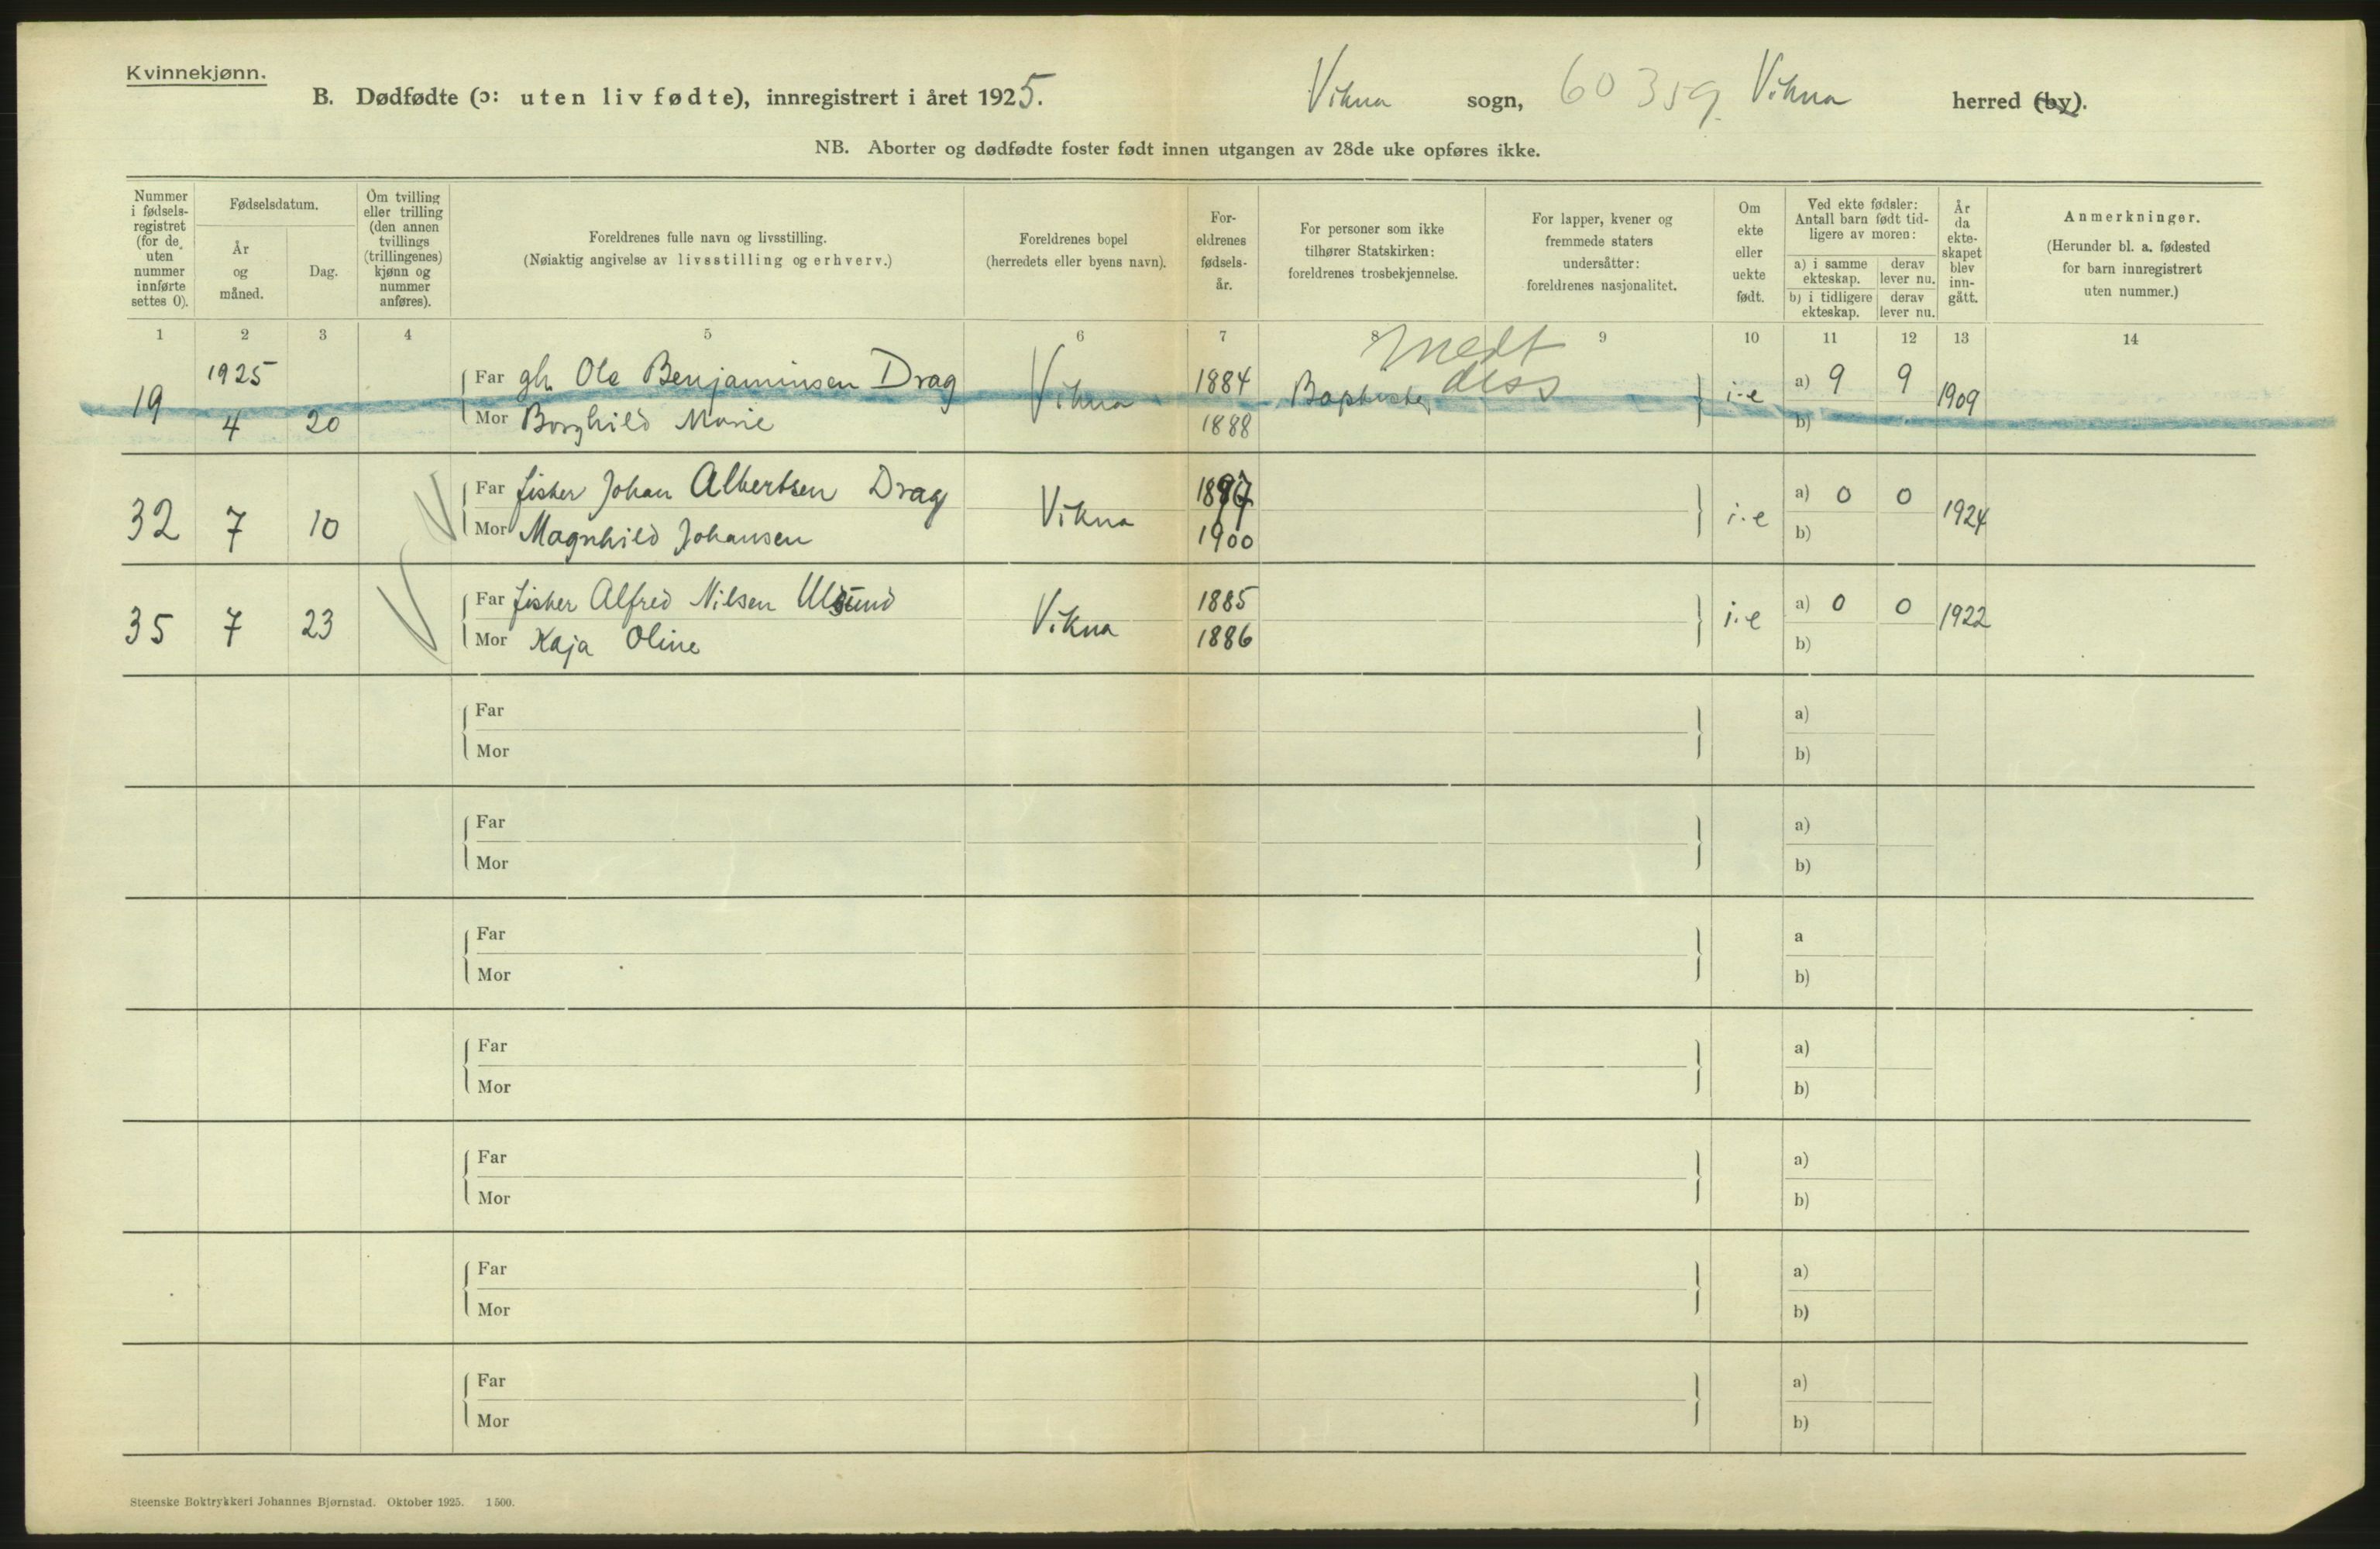 Kvinnekjønn.
B. Dødfødte (ɔ: uten liv fødte), innregistrert i året 1925. Vikna sogn, 60359 Vikna herred (by).
NB. Aborter og dødfødte foster født innen utgangen av 28de uke opføres ikke.
Nummer i fødsels- registret (for de uten nummer innførte settes 0).
Fødselsdatum.
År og måned.
Dag.
Om tvilling eller trilling (den annen tvillings (trillingenes) kjønn og nummer anføres).
Foreldrenes fulle navn og livsstilling.
(Nøiaktig angivelse av livsstilling og erhverv.)
Foreldrenes bopel
(herredets eller byens navn).
For- eldrenes fødsels- år.
For personer som ikke tilhører Statskirken: foreldrenes trosbekjennelse.
For lapper, kvener og fremmede staters undersåtter: foreldrenes nasjonalitet.
Om ekte eller uekte født.
Ved ekte fødsler: Antall barn født tid- ligere av moren:
a) i samme ekteskap. derav lever nu.
b) i tidligere ekteskap. derav lever nu.
År da ekte- skapet blev inn- gått.
Anmerkninger.
(Herunder bl. a. fødested for barn innregistrert uten nummer.)
1 2 3 4 5 6 7 8 9 10 11 12 13 14
medt
diss
19 1925 4 20 Far gb. Ole Benjaminsen Drag Vikna 1884 Baptister i-e a) 9 9 1909
Mor Borghild Marie 1888 b)
32 7 10 Far fisker Johan Albertsen Drag Vikna 1897 i.e a) 0 0 1924
Mor Magnhild Johansen 1900 b)
35 7 23 Far fisker Alfred Nilsen Ulsund Vikna 1885 i.e a) 0 0 1922
Mor Kaja Oline 1886 b)
Far a)
Mor b)
Far a)
Mor b)
Far a
Mor b)
Far a)
Mor b)
Far a)
Mor b)
Far a)
Mor b)
Far a)
Mor b)
Steenske Boktrykkeri Johannes Bjørnstad. Oktober 1925. 1500.